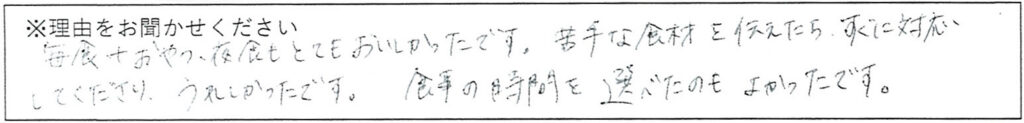 ※理由をお聞かせください
毎食+おやつ、夜食もとてもおいしかったです。苦手な食材を伝えたら、すぐに対応
してくださり、うれしかったです。 食事の時間を選べたのもよかったです。